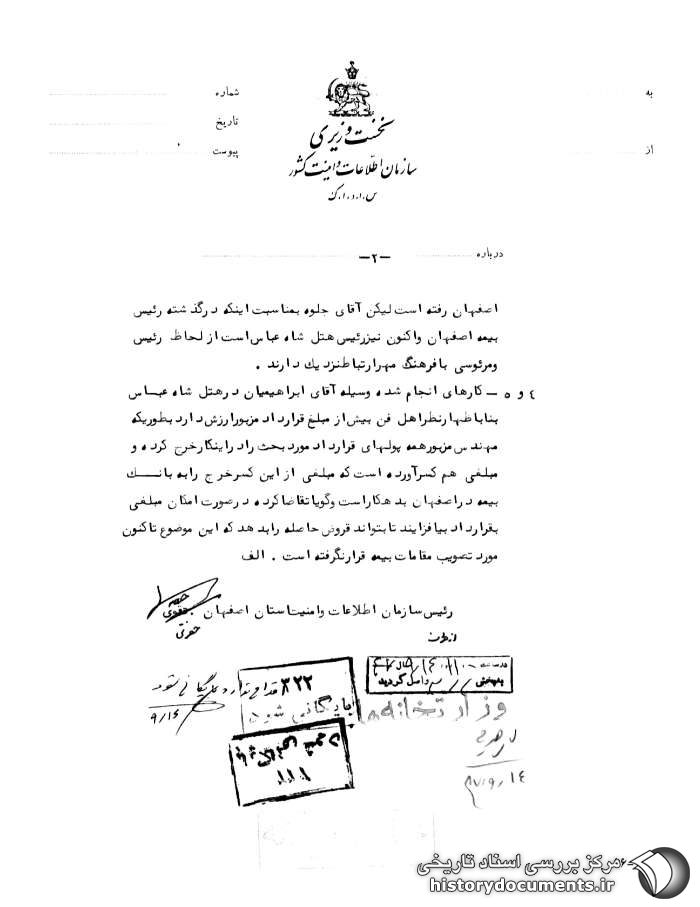 به
شماره
تاریخ
از
پیوست
نخست وزیری
سازمان اطلاعات و امنیت کشور
س.ا.و.ا.ک
درباره
-۲-
اصفهان رفته است لیکن آقای جلوه بمناسبت اینکه درگذشته رئیس
بیمه اصفهان واکنون نیز رئیس هتل شاه عباس است از لحاظ رئیس
ومرئوسی با فرهنگ مهر ارتباط نزدیك دارند .
٤ و ٥ – کارهای انجام شده وسیله آقای ابراهیمیان در هتل شاه عباس
بنا باظهار نظر اهل فن بیش از مبلغ قرارداد مزبور ارزش دارد بطوریکه
مهندس مزبور همه پولهای قرارداد مورد بحث را در اینکار خرج کرده و
مبلغی هم کسر آورده است که مبلغی از این کسر خرج را به بانك
بیمه در اصفهان بدهکار است وگویا تقاضا کرده در صورت امکان مبلغی
بقرارداد بیافزایند تا بتواند قروض حاصله را بدهد که این موضوع تاکنون
مورد تصویب مقامات بیمه قرار نگرفته است . الف
رئیس سازمان اطلاعات وامنیت استان اصفهان
از طرف
۳۲۲
بایگانی شود
وزارتخانه ها
بایگانی شود
۹/۱٤
مرکز بررسی اسناد تاریخی
historydocuments.ir